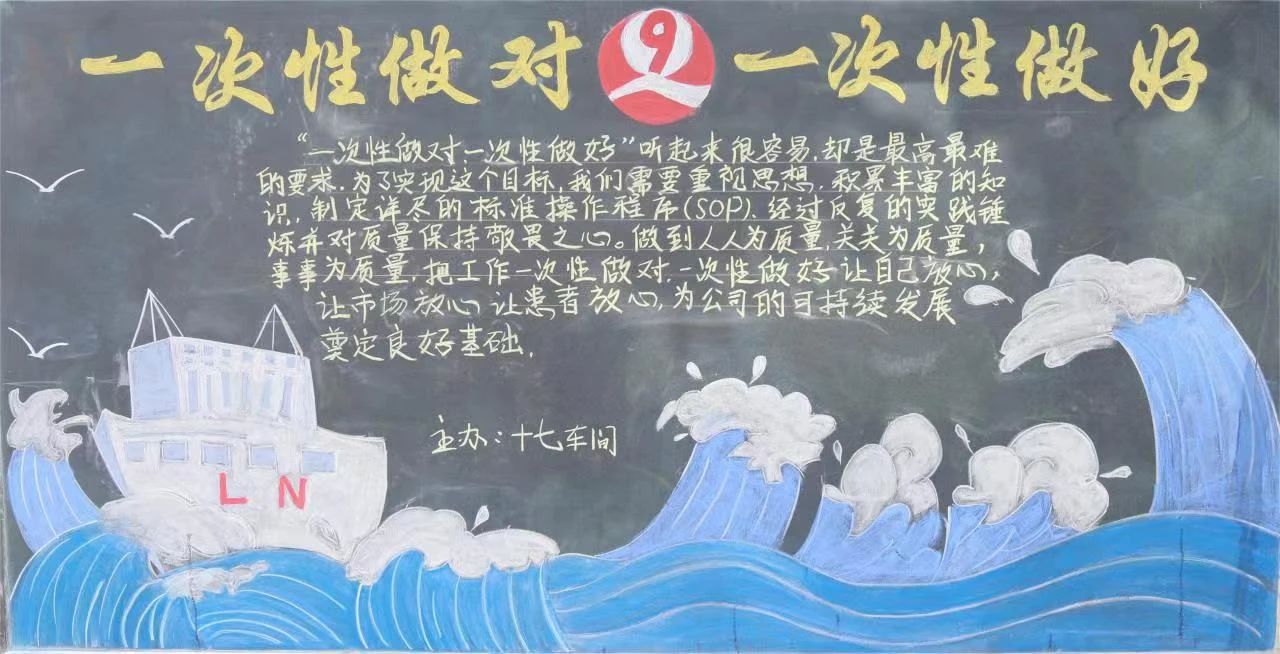 一次性做对 一次性做好
“一次性做对一次性做好”听起来很容易,却是最高最难
的要求,为了实现这个目标,我们需要重视思想,积累丰富的知
识,制定详尽的标准操作程序(SOP)、经过反复的实践锤
炼并对质量保持敬畏之心。做到人人为质量,关关为质量,
事事为质量,把工作一次性做对,一次性做好让自己放心,
让市场放心,让患者放心,为公司的可持续发展
奠定良好基础.
主办:十七车间
LN